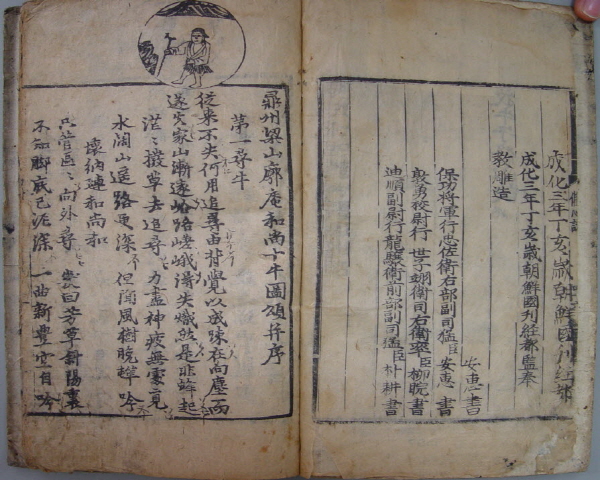 成化三年丁亥歲朝鮮國刊經都
成化三年丁亥歲朝鮮國刊經都監奉
教雕造
安惠書
保功将軍行忠佐衛右部副司猛臣安惠書
敦勇校尉行世子翊衛司右衛率臣柳睆書
迪順副尉行龍驤衛前部副司猛臣朴耕書
鼎州梁山廓庵和尚十牛圖頌并序
第一尋牛
從来不失何用追尋由背覺以成踈在向塵而
遂失家山漸遠歧路嵯峨得失熾然是非蜂起
茫〻撥草去追尋 力盡神疲無處覓
水闊山遥路更深 但聞風樹晚蟬吟
壞衲璉和尚和
只管區〻向外尋 幾回芳草斜陽裏
不知脚底已泥深 一曲新豊空自吟